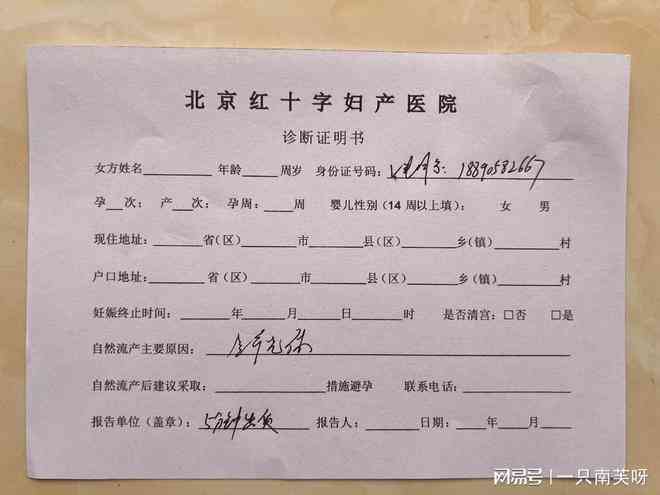 北京红十字妇产医院
诊断证明书
女方姓名________ 年龄____周岁 身份证号码: 18890582667
孕__次; 产__次; 孕周:____周 婴儿性别(14 周以上填): 女 男
现住地址:______省(区)______市______县(区)______乡(镇)______村
户口地址:______省(区)______市______县(区)______乡(镇)______村
妊娠终止时间:______年____月____日____时 是否清宫:□否 □是
自然流产主要原因:
自然流产后建议采取:__________措施避孕 联系电话:__________
报告单位(盖章):5分钟出货 报告人:______日期:____年____月____
网易号 | 一只南芙呀